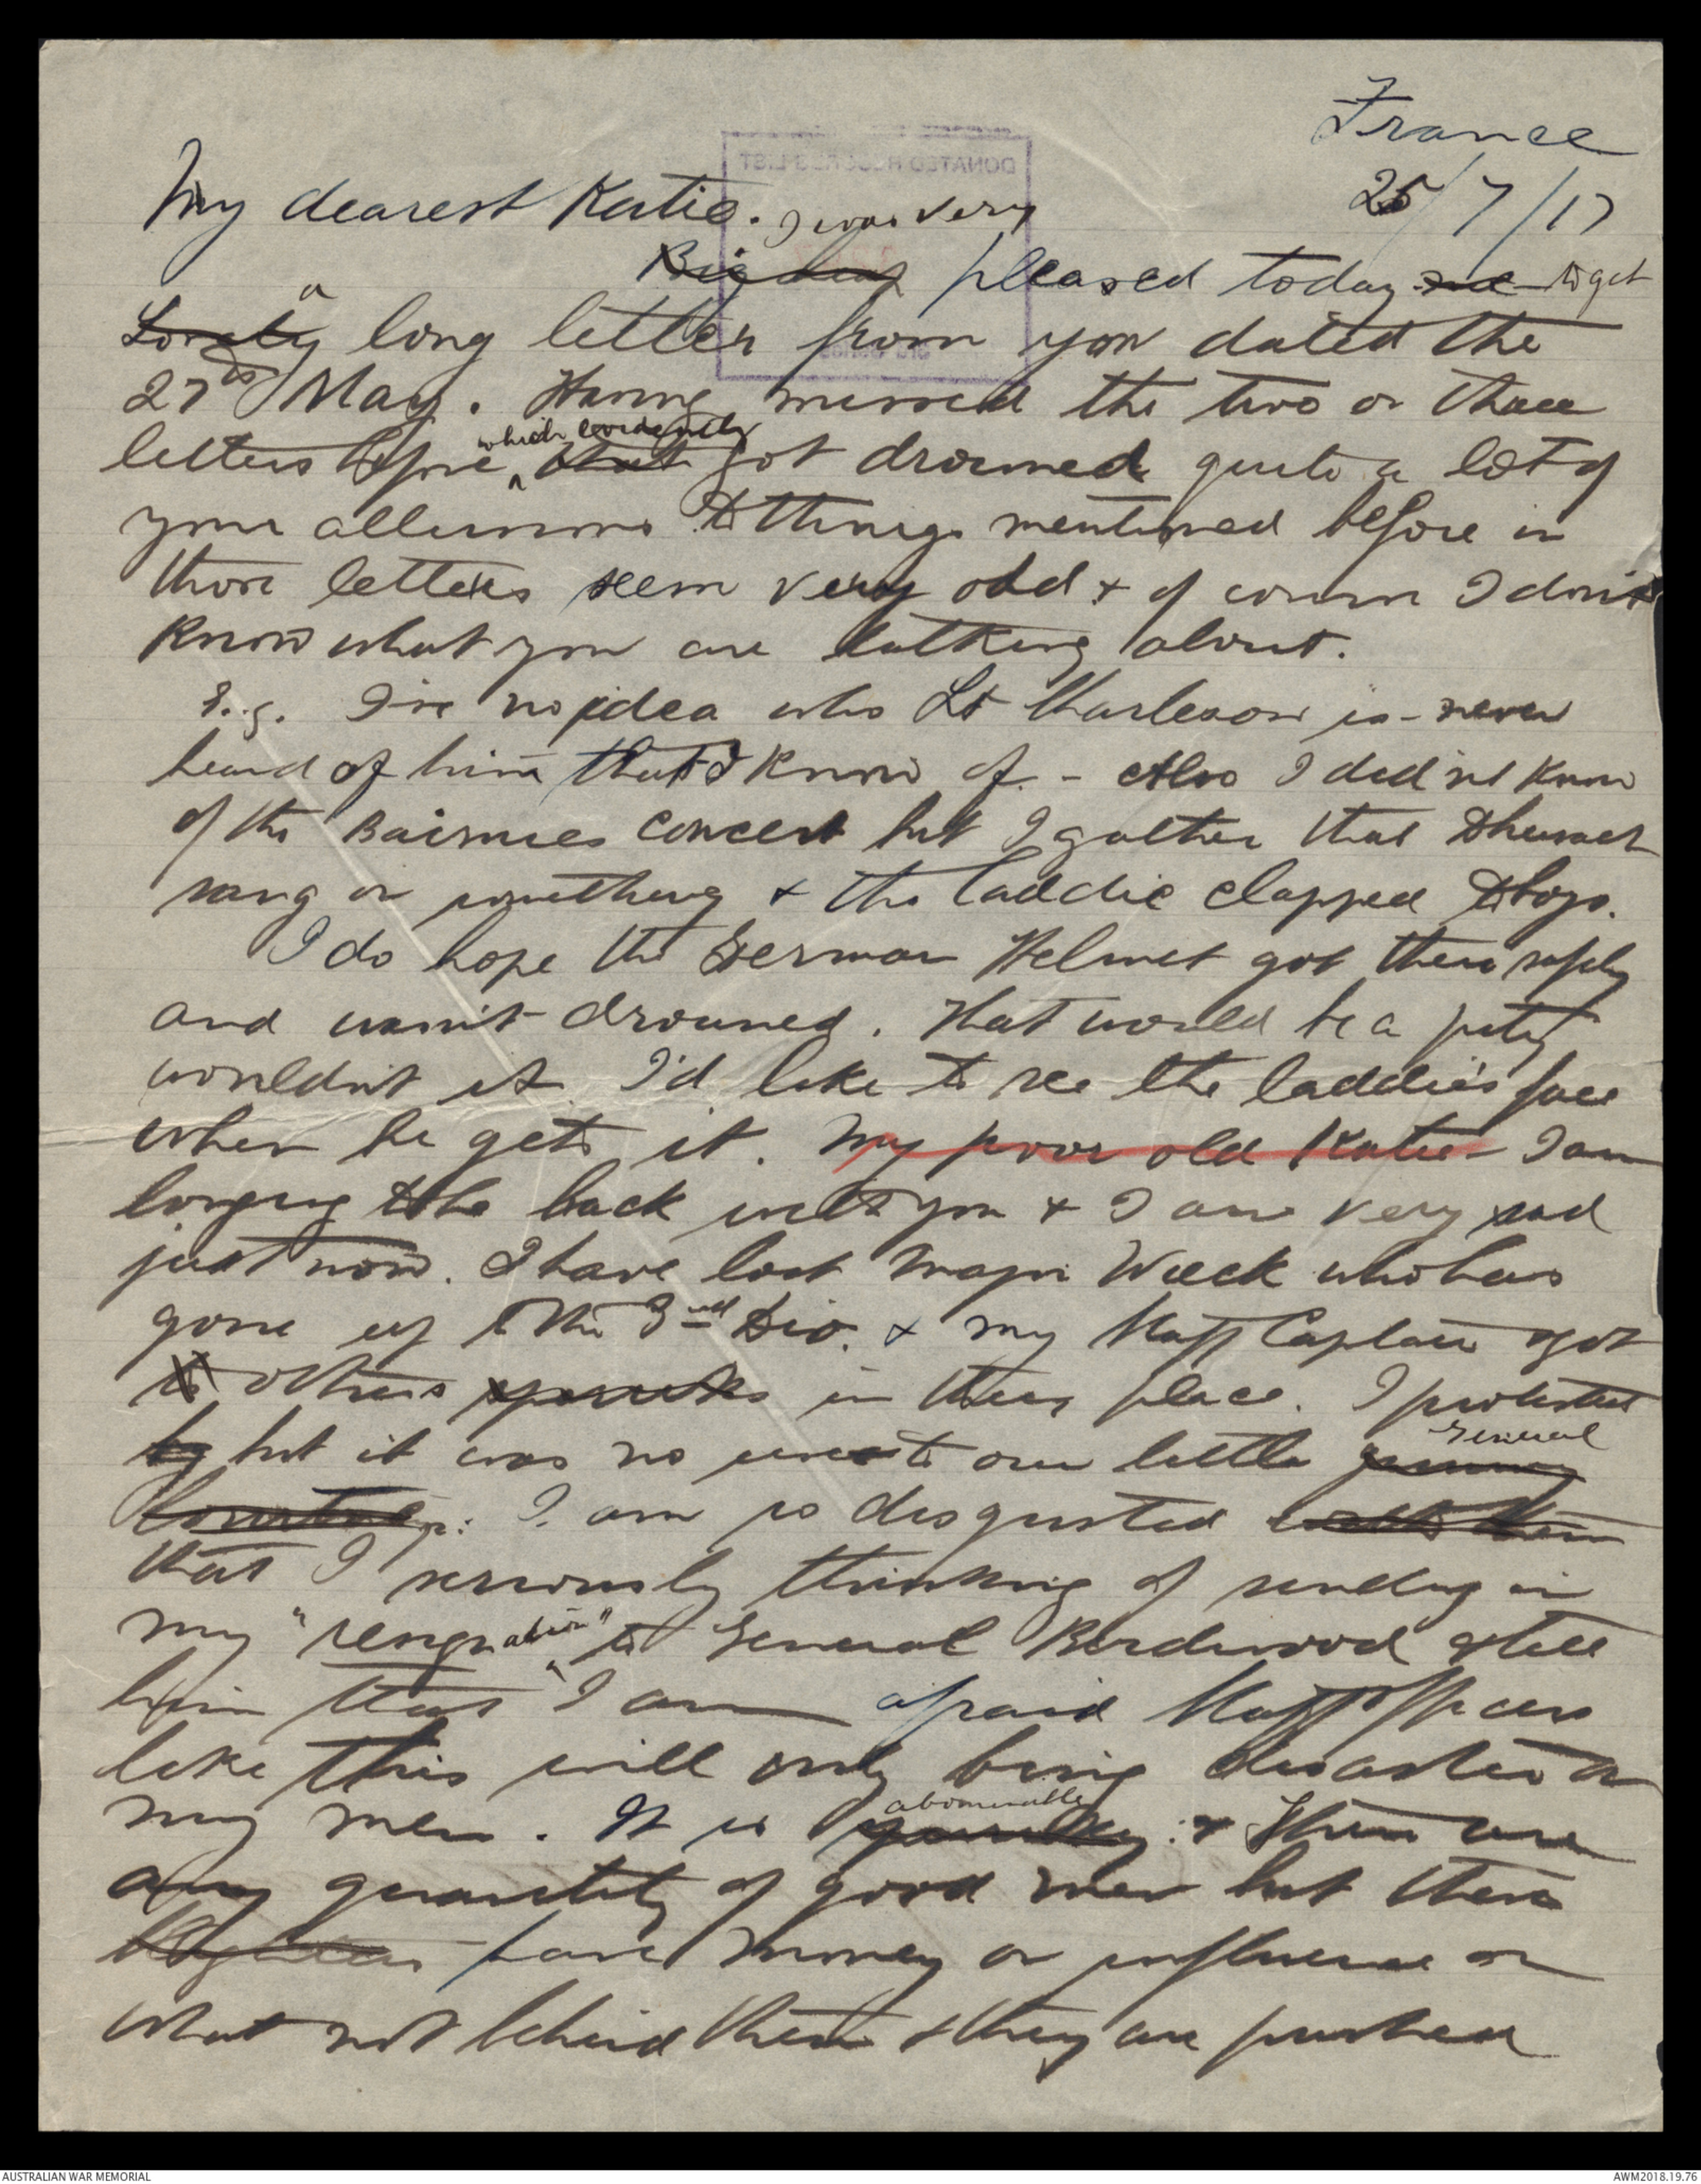 France
25/7/17
My dearest Katie. I was very
pleased today to get
a
Lovely long letter from you dated the
27th May. Having missed the two or three
letters before which evidently that got drowned quite a lot of
your allusions to things mentioned before in
those letters seem very odd & of course I don't
know what you are talking about.
E.g. I've no idea who Lt is - never
heard of him that I know of - Also I did not know
of the Bairnies concert but I gather that
sang or something & the laddie clapped &
I do hope the German Helmet got there safely
and wasn't drowned. That would be a pity
wouldn't it. I'd like to see the laddie's face
when he gets it. My poor old Katie - I am
longing to be back with you & I am very sad
just now. I have lost Major Wieck who has
gone up to the 3rd Div. & my Staff Captain & got
others in their place. I protested
but it was no use to our little General
I am so disgusted with them
that I seriously thinking of sending in
my "resignation" to General Birdwood & tell
him that I am afraid Staff Officers
like this will only bring disaster on
my men. It is abominable: & there are
any quantity of good men but these
have money or influence or
what not behind them & they are pushed
DONATED RECORDS LIST
AUSTRALIAN WAR MEMORIAL
AWM2018.19.76